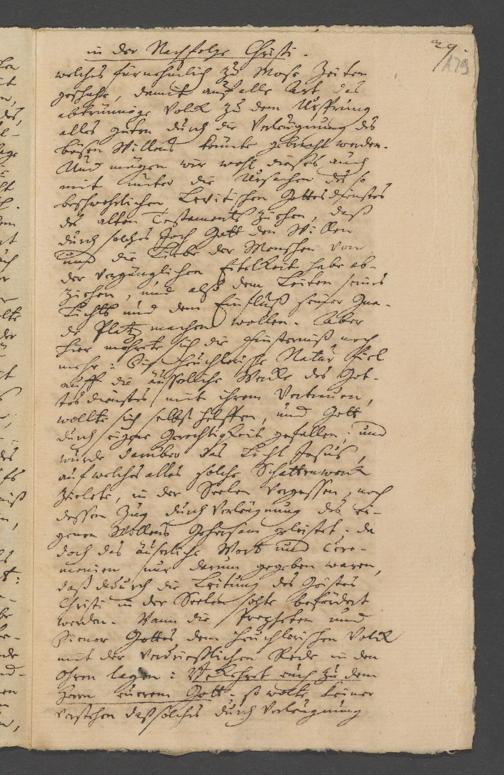 in der Nachfolge Christi.
29.
179
welches fürnehmlich zu Mose Zeiten
geschahe, damit auf alle Art das
abtrünnige Volck zu dem Ursprung
alles guten durch die Verleugnung des
bösen Willens könte gebracht werden.
Und mögen wir wohl dieses auch
mit unter die Ursachen des so
beschwehrlichen Levitischen Gottesdienstes
des alten Testaments zehlen, daß
durch solches Joch Gott den Willen
und die Liebe der Menschen von
der vergänglichen Eitelkeit habe ab-
ziehen, und also dem Leuten seines
Lichts und dem Einfluß seiner Gna-
de Platz machen wollen. Aber
hier mehrte sich die Finsterniß noch
mehr: Die heuchlerische Natur fiel
auff die äusserliche Wercke des Got-
tesdienstes mit ihrem Vertrauen,
wollte sich selbst helffen, und Gott
durch eigene Gerechtigkeit gefallen; und
wurde darüber das Licht Jesus,
auf welches alles solche Schattenwerck
zielete, in der Seelen vergessen, noch
dessen Zug durch Verleugnung des ei-
genen Wollens Gehorsam geleistet: da
doch das äuserliche Wort und Cere-
monien nur darum gegeben waren,
daß dadurch die Leitung des Geistes
Christi in der Seelen solte befördert
werden. Wann die Propheten und
Diener Gottes dem heuchlerischen Volck
mit der verdrießlichen Rede in den
Ohren lagen: Bekehret euch zu dem
Herrn euerem Gott. so wolte keiner
verstehen daß solches durch Verleugnung